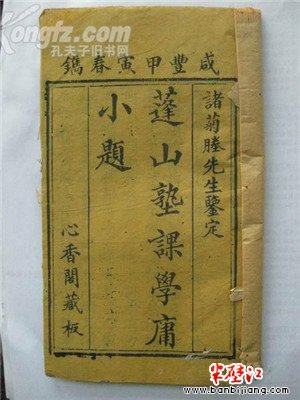 Kongfz.com
孔夫子旧书网
咸豐甲寅春鐫
諸菊塍先生鑒定
蓬山塾課學庸
小題
心香閣藏板
半壁江
www.banbijiang.com